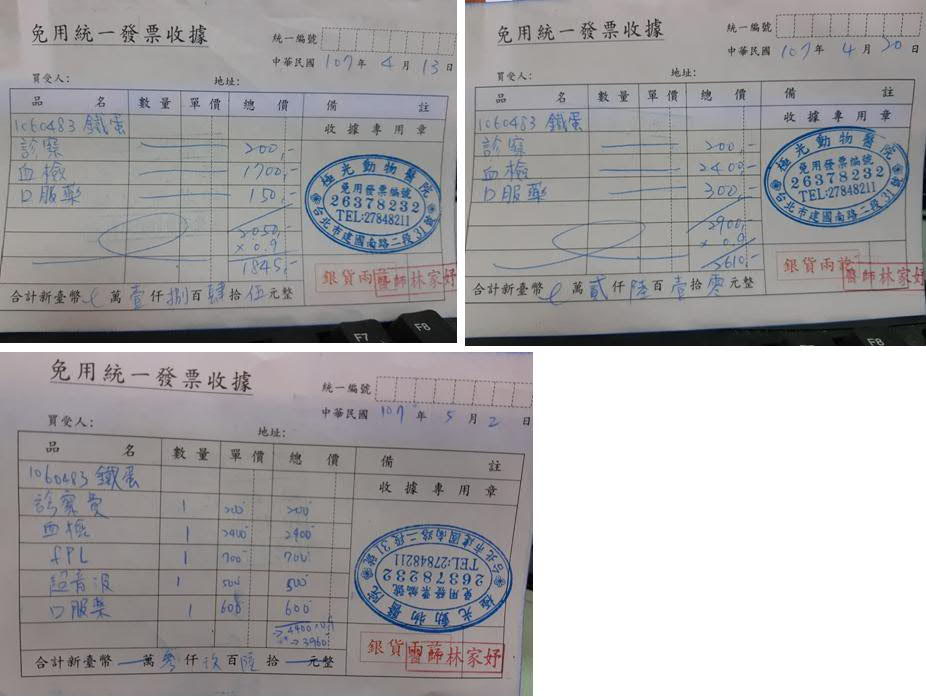 免用統一發票收據
統一編號
中華民國 107 年 4 月 13 日
買受人: 地址:
品名 數量 單價 總價 備註
1060483 鐵蛋 收據專用章
診察 200.-
血檢 1700.-
口服藥 150.-
2050.-
x 0.9
1845.-
極光動物醫院
免用發票編號
26378232
TEL:27848211
台北市建國南路二段31號
銀貨兩訖
醫師林家妤
合計新臺幣 萬壹仟捌百肆拾伍元整
F7 F8
免用統一發票收據
統一編號
中華民國 107 年 4 月 20 日
買受人: 地址:
品名 數量 單價 總價 備註
1060483 鐵蛋 收據專用章
診察 200.-
血檢 2400.-
口服藥 300.-
2900.-
x 0.9
2610.-
極光動物醫院
免用發票編號
26378232
TEL:27848211
台北市建國南路二段31號
銀貨兩訖
醫師林家妤
合計新臺幣 萬貳仟陸百壹拾零元整
F8
免用統一發票收據
統一編號
中華民國 107 年 5 月 2 日
買受人: 地址:
品名 數量 單價 總價 備註
1060483 鐵蛋 收據專用章
診察費 1 200 200
血檢 1 2400 2400
fPL 1 700 700
超音波 1 500 500
口服藥 1 600 600
4400 x 0.9
→ 3960
極光動物醫院
免用發票編號
26378232
TEL:27848211
台北市建國南路二段31號
銀貨
醫師林家妤
合計新臺幣 萬參仟玖百陸拾 元整